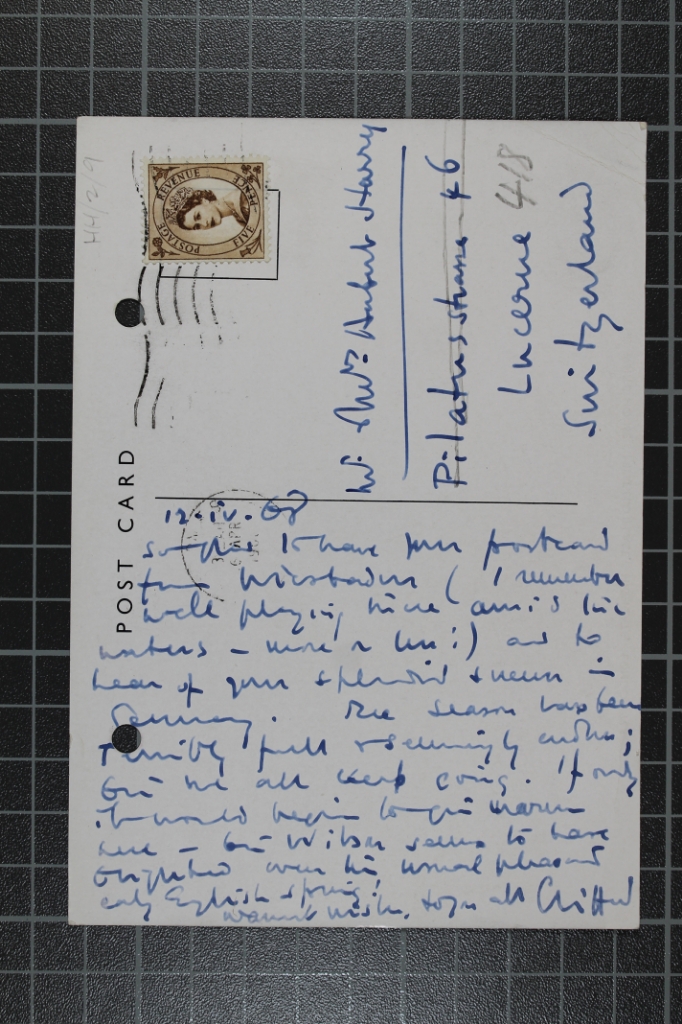 HH/2/9
POST CARD
POSTAGE REVENUE
FIVE PENCE
Mr. Hubert Harry
Pilatusstrasse 46
418
Lucerne
Switzerland
12.iv.
to have your postcard
from Wiesbaden (I remember
well playing there amid the
waters – more or less!) and to
hear of your splendid success in
Germany. The season has been
terribly full & seemingly endless;
but we all keep going. If only
it would begin to get warm
here – but Wilson seems to have
blighted even the usual pleasant
early English spring!
warmest wishes to you all Clifford